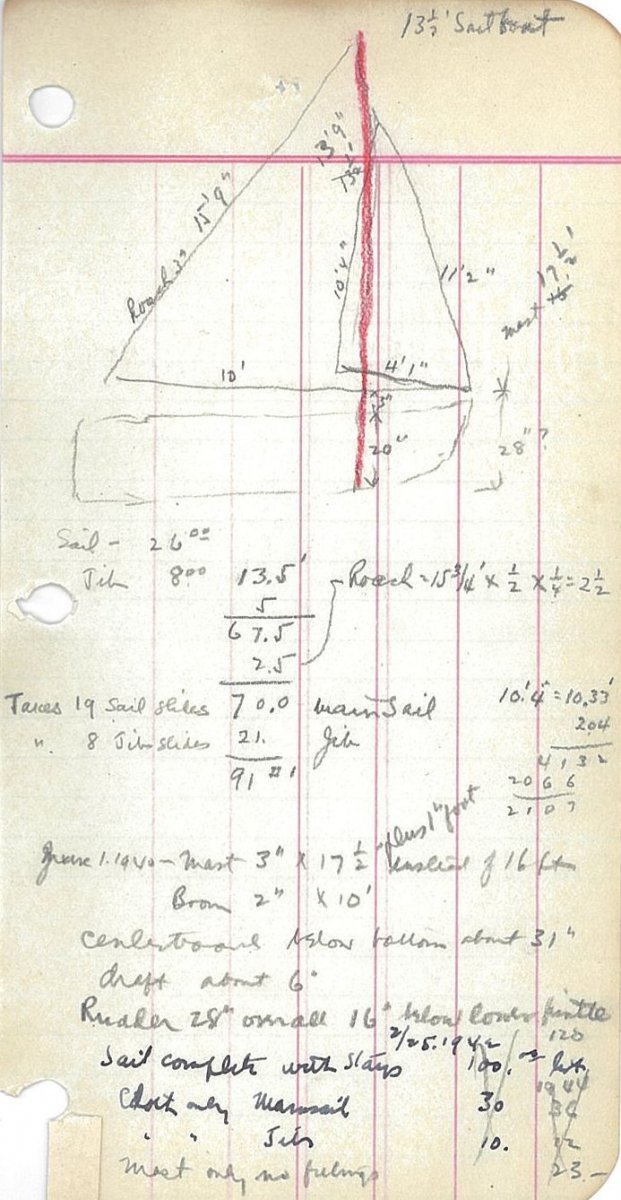 13½' Sailboat
13'9"
13½'
15'9"
Roach 3"
10'4"
11'2"
mast 17½'
10'
4'1"
3"
20"
28"?
Sail - 26⁰⁰
Jib 8⁰⁰
13.5'
5
67.5
2.5
Roach = 15¾' x ½ x ¼ = 2½
Takes 19 Sail slides 70.0 mainsail
" 8 Jib slides 21. Jib
91 #1
10'.4" = 10.33'
204
4132
2066
2107
plus 1" foot
June 1. 1940 - Mast 3" x 17½ instead of 16 ft
Boom 2" x 10'
Centerboard below bottom about 31"
draft about 6"
Rudder 28" overall 16" below lower pintle
2/25.1942
Sail complete with Stays 100.00 120
1944
Cloth only Mainsail 30 36
" " Jib 10. 12
Mast only no fittings 23.-